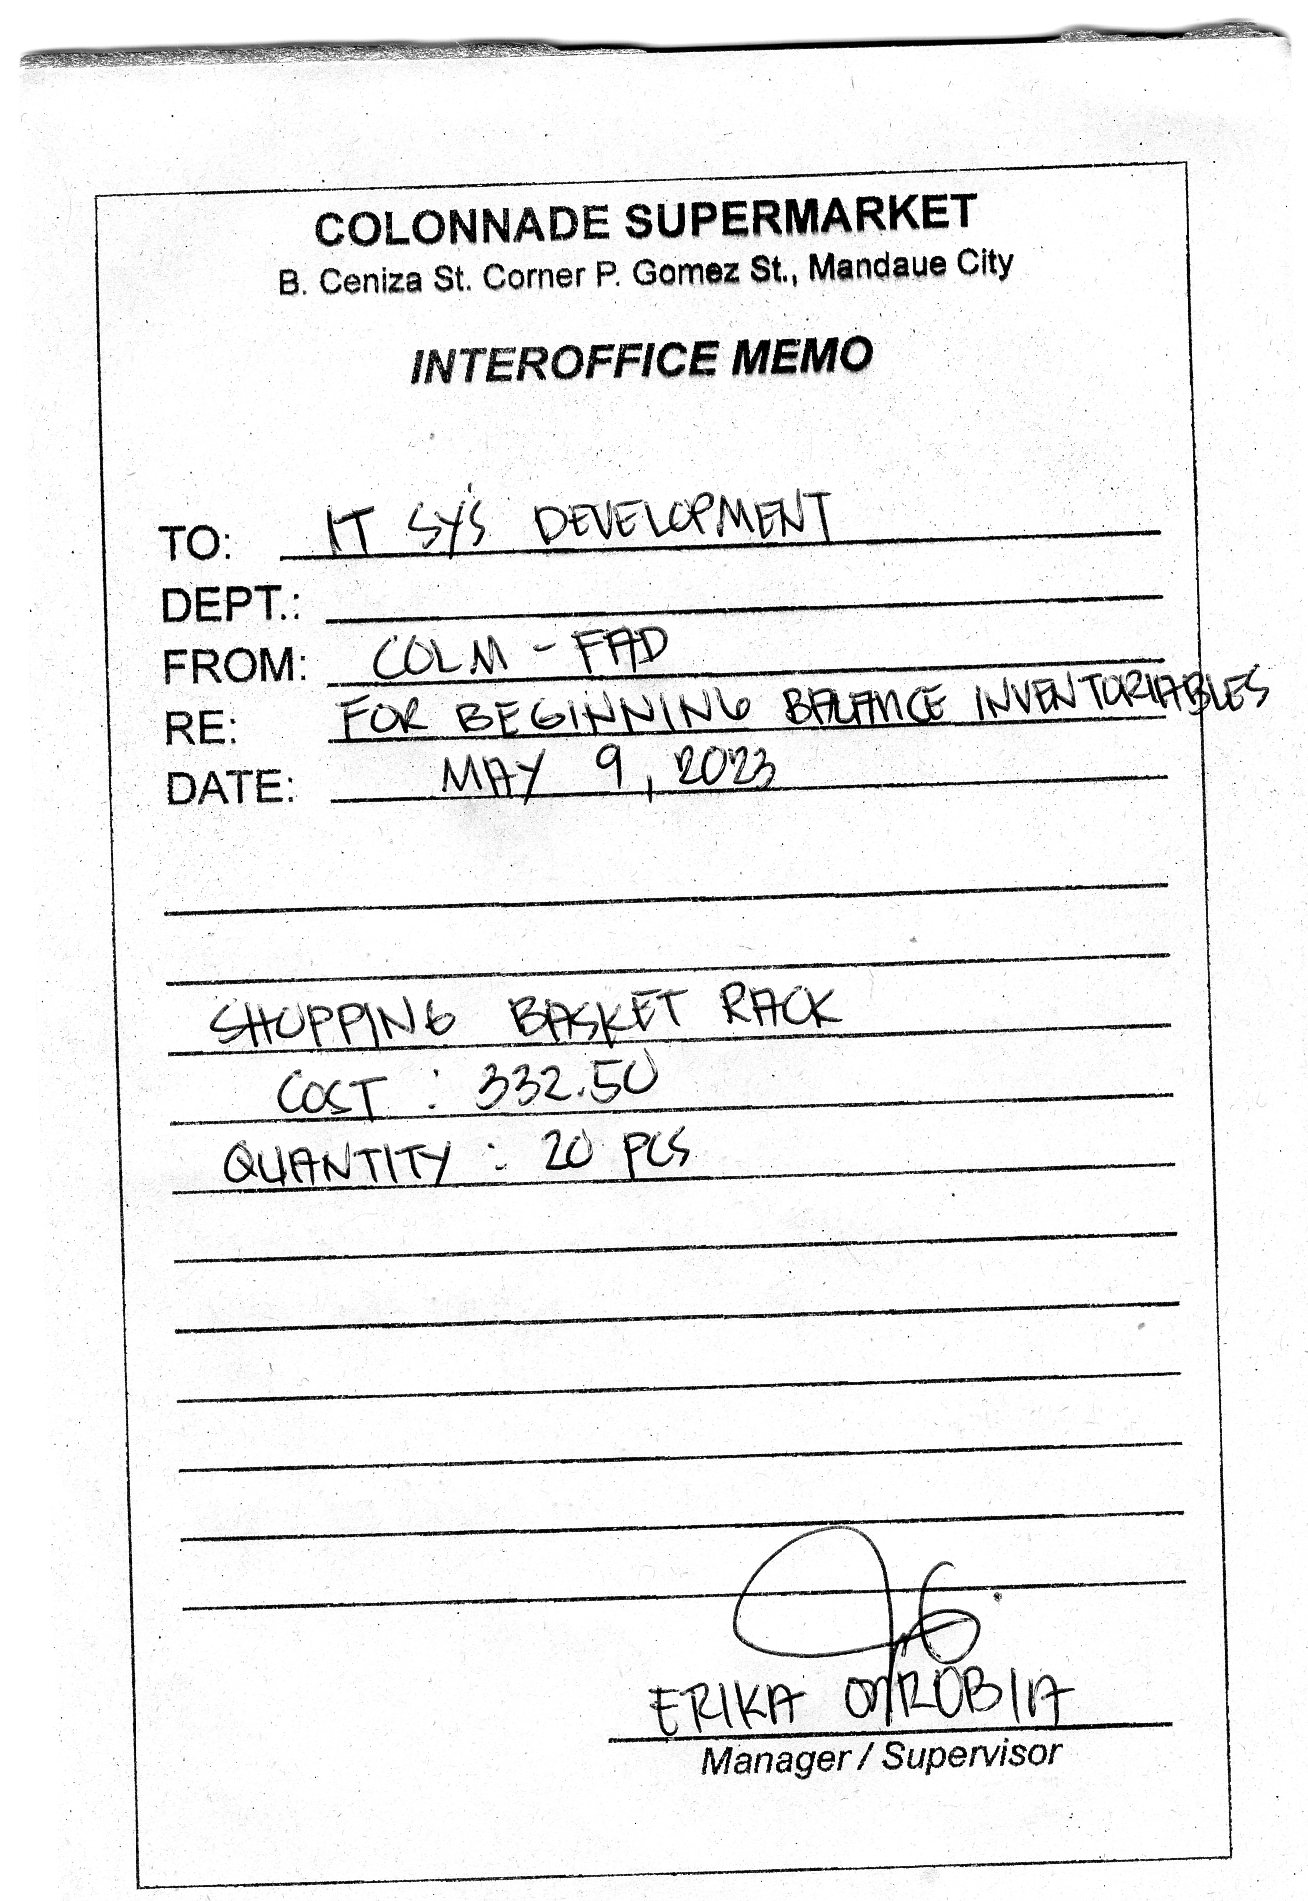 COLONNADE SUPERMARKET
B. Ceniza St. Corner P. Gomez St., Mandaue City
INTEROFFICE MEMO
TO: IT SYS DEVELOPMENT
DEPT.:
FROM: COLM - FAD
RE: FOR BEGINNING BALANCE INVENTORIABLES
DATE: MAY 9, 2023
SHOPPING BASKET RACK
COST : 332.50
QUANTITY : 20 PCS
ERIKA
Manager / Supervisor